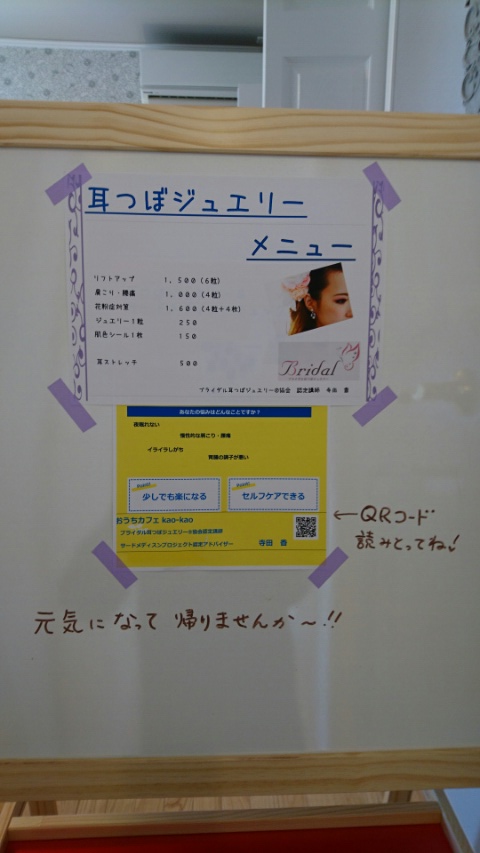 耳つぼジュエリー
メニュー
リフトアップ 1,500(6粒)
肩こり・腰痛 1,000(4粒)
花粉症対策 1,600(4粒+4粒)
ジュエリー1粒 250
肌色シール1枚 150
耳ストレッチ 500
Bridal
ブライダル耳つぼジュエリー®協会 認定講師 寺田 香
あなたの悩みはどんなことですか?
夜眠れない
慢性的な肩こり・腰痛
イライラしがち
胃腸の調子が悪い
少しでも楽になる
セルフケアできる
おうちカフェ kao-kao
ブライダル耳つぼジュエリー®協会認定講師
サードメディスンプロジェクト認定アドバイザー 寺田 香
←QRコード
読みとってね!
元気になって 帰りませんか〜!!